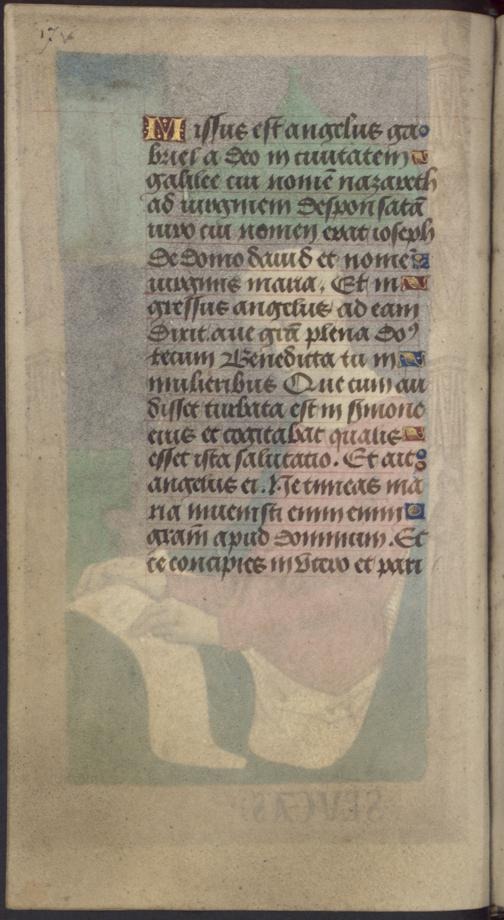 17v
Missus est angelus ga
briel a deo in ciuitatem
galilee cui nomē nazareth
ad uirginem desponsatā
uiro cui nomen erat ioseph
de domo dauid et nomē
uirginis maria. Et in
gressus angelus ad eam
dixit. aue grā plena do⁹
tecum Benedicta tu in
mulieribus Que cum au
disset turbata est in sermone
eius et cogitabat qualis
esset ista salutatio. Et ait
angelus ei. Ne timeas ma
ria inuenisti enim enim
gratiā apud dominum. Et
ce concipies in vtero et pari
SEVCAS